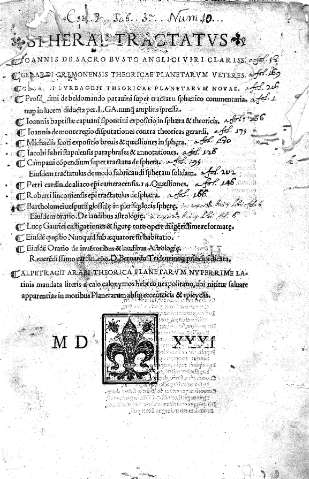 SPHERAE TRACTATVS
IOANNIS DE SACRO BVSTO ANGLICI VIRI CLARISS.
GERARDI CREMONENSIS THEORICAE PLANETARVM VETERES.
PVRBACHII THEORICAE PLANETARVM NOVAE.
Prosdocimi de beldomando patauini super tractatu sphærico commentaria,
nuper in lucem diducta per L. GA. nunquam amplius impressa.
Ioannis baptistæ capuani sipontini expositio in sphæra & theoricis.
Ioannis de monteregio disputationes contra theoricas gerardi.
Michaelis scoti expositio breuis & quæstiones in sphæra.
Iacobi fabri stapulensis paraphrases & annotationes.
Campani cōpendium super tractatu de sphera.
Eiusdem tractatulus de modo fabricandi sphæram solidam.
Petri cardin. de aliaco epi cameracensis. 14. Quæstiones.
Roberti linconiensis epi tractatulus de sphæra.
Bartholomei uesputii glossulæ in plerisque locis sphæræ.
Eiusdem oratio. De laudibus astrologiæ.
Lucæ Gaurici castigationes & figuræ toto opere diligentissime reformatæ.
Eiusdē quæstio Nunquid sub æquatore sit habitatio.
Eiusdē Oratio de inuentoribus & laudibus Astrologiæ.
Reuerendissimo cardin. epo. D. Bernardo Tridentinorum principi dicata.
ALPETRAGII ARABI THEORICA PLANETARVM NVPERRIME LA
tinis mandata literis a calo calonymos hebreo neapolitano, ubi nititur saluare
apparentias in motibus Planetarum absque eccentricis & epicyclis.
M D XXXI